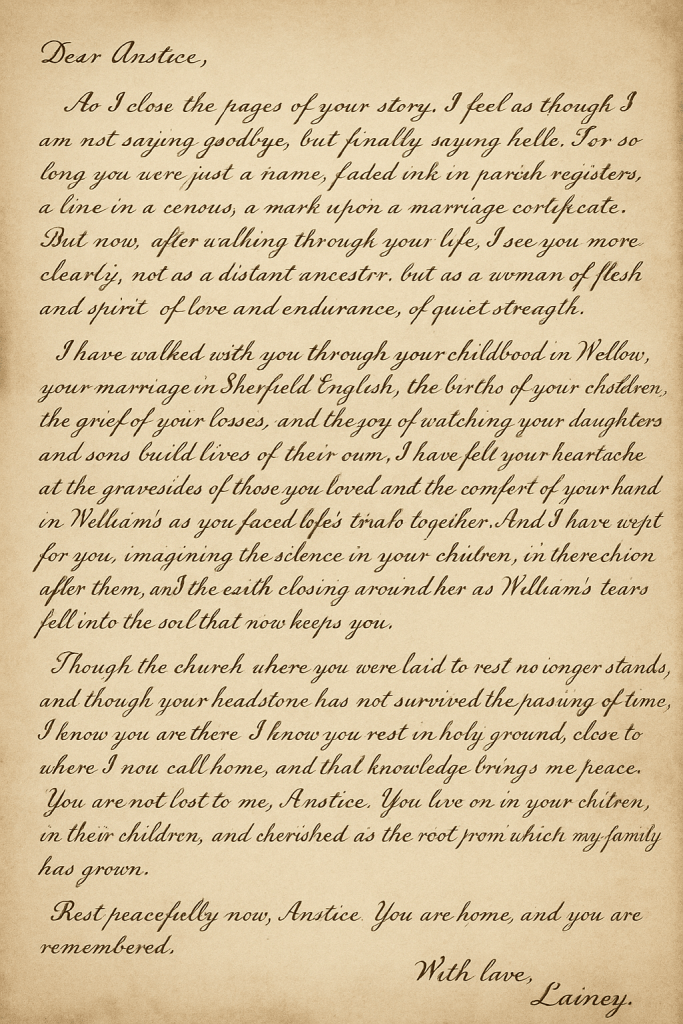 Dear Anstice,
Ao I close the pages of your story. I feel as though I
am not saying goodbye, but finally saying helle. For so
long you were just a name, faded ink in parish registers,
a line in a cenous, a mark upon a marriage certificate.
But now, after walking through your life, I see you more
clearly, not as a distant ancestrr. but as a woman of flesh
and spirit of love and endurance, of quiet streagth.
I have walked with you through your childbood in Wellow,
your marriage in Sherfield English, the births of your chsldren,
the grief of your losses, and the joy of watching your daughters
and sons build lives of their oum, I have felt your heartache
at the gravesides of those you loved and the comfert of your hand
in William's as you faced lofe's trialo together. And I have wept
for you, imagining the silence in your chiidren, in therechion
after them, and the eaith closing around her as William's tears
fell into the soil that now keeps you.
Though the church where you were laid to rest no ionger stands,
and though your headstone has not survived the pasiing of time,
I know you are there I know you rest in holy ground, clcse to
where I nou call home, and that knowledge brings me peace.
You are not lost to me, Anstice. You live on in your chitren,
in their children, and cherished as the root prom which my family
has grown.
Rest peacefully now, Anstice. You are home, and you are
remembered.
With lave,
Lainey.